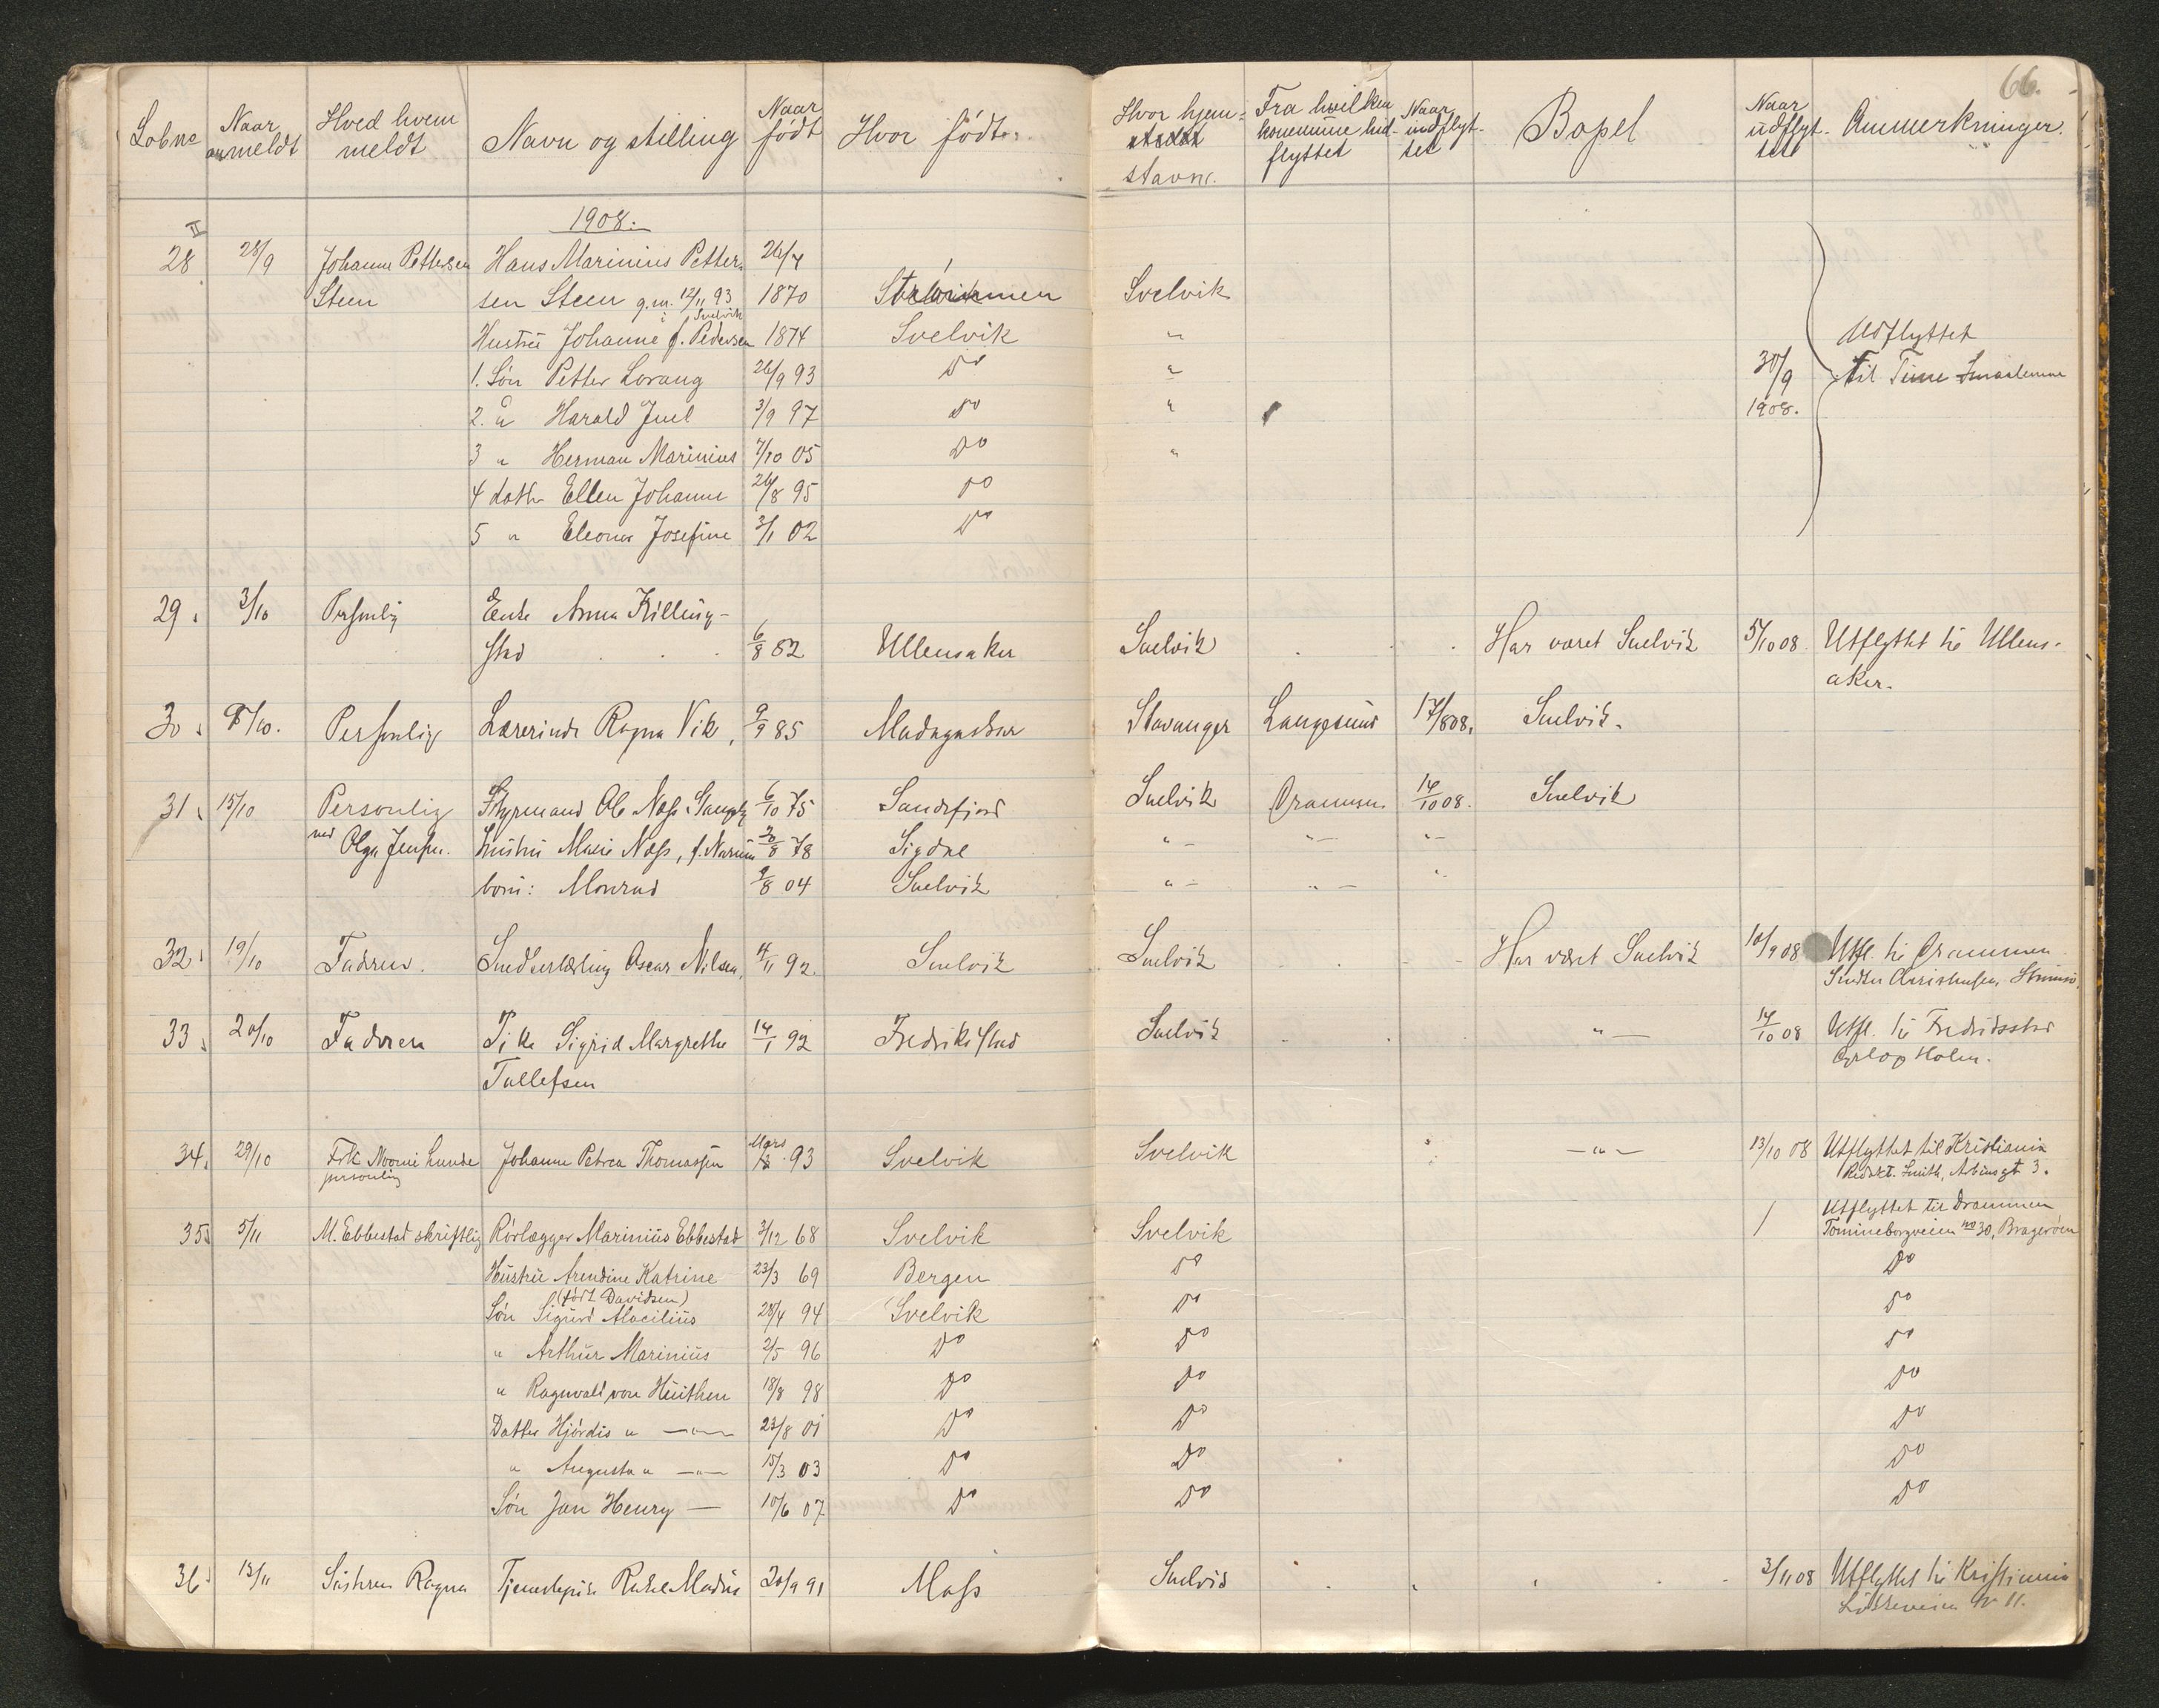 66.
Lobne Naar anmeldt Hved hvem meldt Navn og stilling Naar født Hvor født. Hvor hjem= stavn. Fra hvilken kommune ind- flyttet Naar indflyt- tet Bopel Naar udflyt- tet Anmerkninger.
1908.
II
28 28/9 Johanne Pettersen Hans Marinius Petter- 26/4
Steen sen Steen g.m. 12/11 93 1870 Strømmen Svelvik
i Svelvik
Hustrü Johanne f. Pedersen 1874 Svelvik " Udflyttet
1. Søn Petter Lorang 26/9 93 Do " 30/9 Til Tune Smaalenene
2. " Harald Juel 3/9 97 Do " 1908.
3 " Herman Marinius 7/10 05 Do "
4 datter Ellen Johanne 26/8 95 Do
5 " Eleonor Josefine 3/1 02 Do
29. 3/10 Personlig Enke Anna Killing-
stad 6/8 52 Ullensaker Svelvik Har været Svelvik 5/10 08. Utflyttet til Ullens-
aker.
30. 8/10. Personlig Lærerinde Ragna Vik, 9/9 85 Madagaskar Stavanger Langesund 17/8 08. Svelvik.
31. 15/10 Personlig Styrmand Ole Næss 6/10 75 Sandefjord Svelvik Drammen 14/10 08. Svelvik
ved Olga Jensen. hustru Marie Næss, f. 20/8 78 Sigdal " - " - " -
barn: Monrad 9/8 04 Svelvik " - " - "
32. 19/10 Faderen. Smedlærling Oscar Nilsen, 4/11 92. Svelvik Svelvik Har været Svelvik 10/9 08 Utfl. til Drammen
33. 20/10 Faderen Pike Sigrid Margrethe 14/1 92 Fredrikstad Svelvik " 14/10 08 Utfl. til Fredriksstad
Tallefsen Holm.
34. 29/10 Frk Noomi Lunde Johanne Petrea Thomassen Mars 93 Svelvik Svelvik -"- 13/10 08 Utflyttet til Kristiania
personlig Smith, 3.
Utflyttet til Drammen
35 5/11 M. Ebbestad skriftlig Rørlægger Marinius Ebbestad 3/12 68 Svelvik Svelvik / Tomineborgveien No 30, Bragerøen
Hüstrü Arendine Katrine 23/3 69 Bergen Do Do
(født Davidsen)
Søn Sigurd 28/4 94 Svelvik Do Do
" Arthür Marinius 2/5 96 Do Do Do
" Ragnvald von Hüithen 18/8 98 Do Do Do
Datter Hjørdis " -"- 23/8 01 Do Do Do
" Augusta " -"- 15/3 03 Do Do Do
Søn Jan Henry - 10/6 07 Do Do Do
36. 13/11 Søsteren Ragna Tjenestepike 20/9 91 Moss Svelvik 3/11 08 Utflyttet til Kristiania
11.